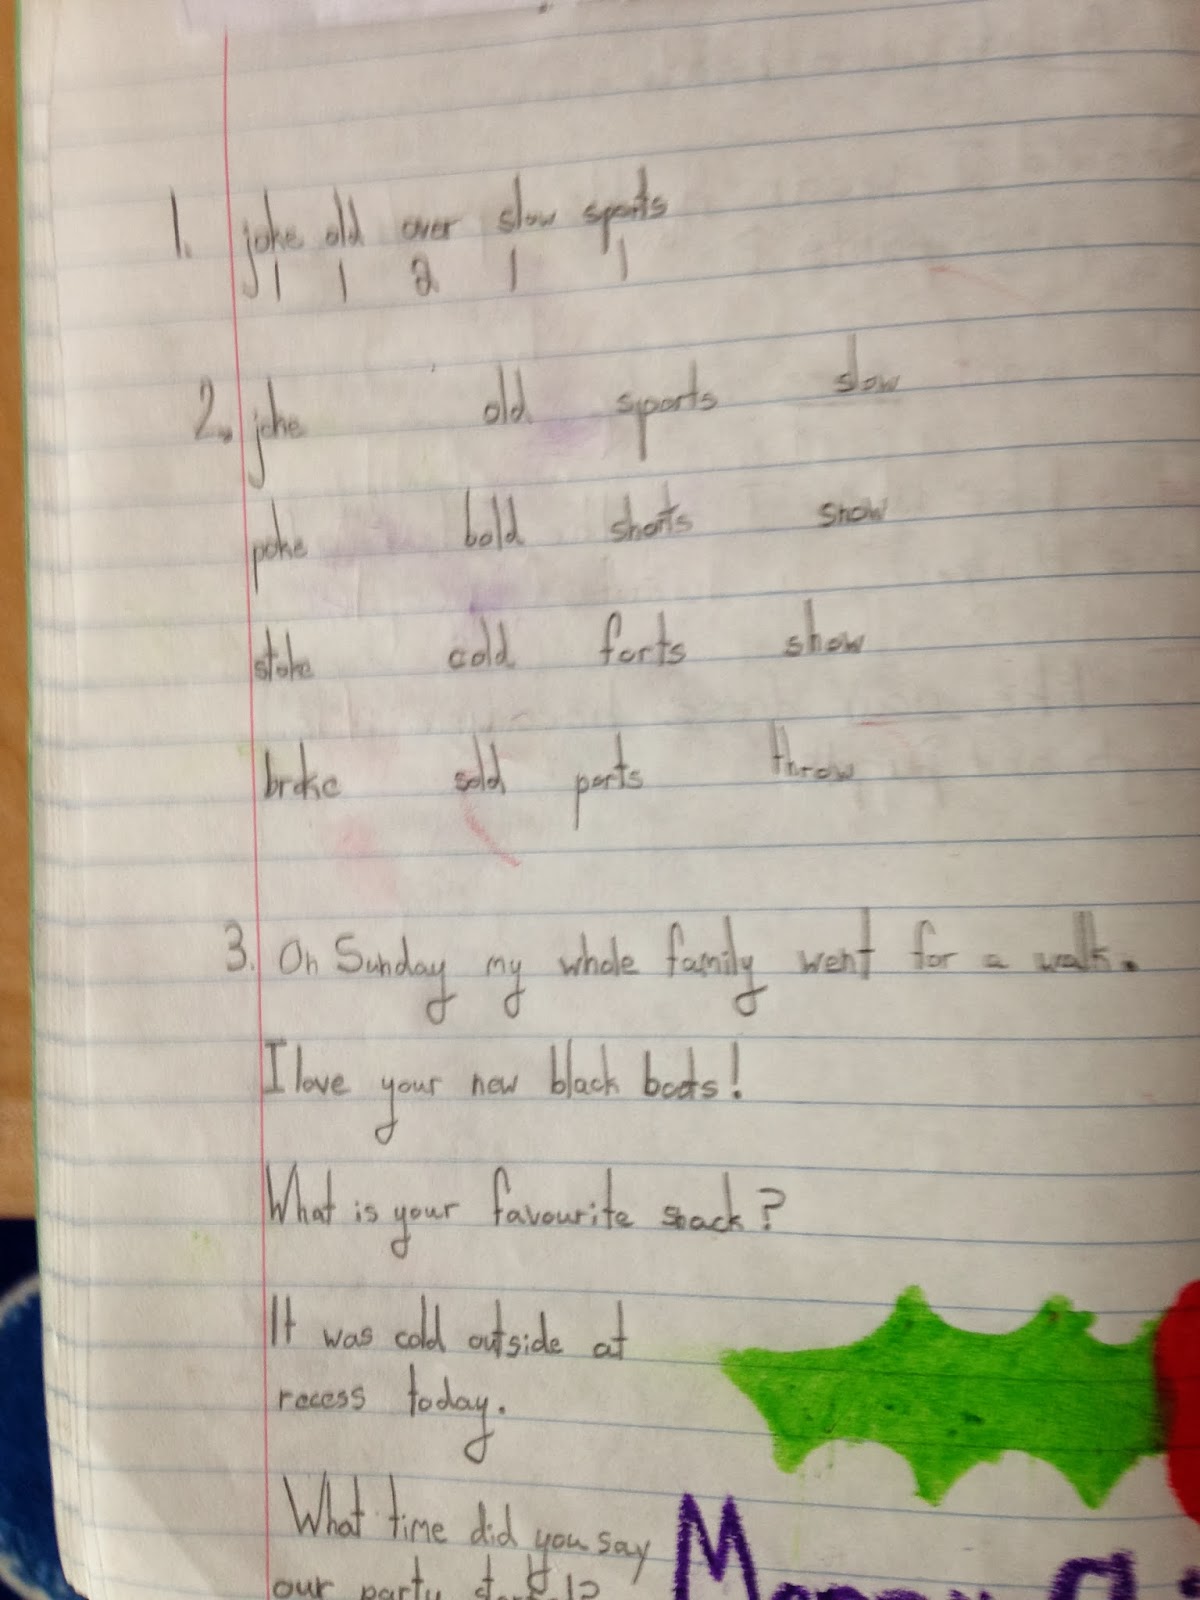 1. joke old over slow sports
1 1 2 1 1
2. joke old sports slow
poke bold shorts snow
stoke cold forts show
broke sold ports throw
3. On Sunday my whole family went for a walk.
I love your new black boots!
What is your favourite snack?
It was cold outside at
recess today.
What time did you say
our party